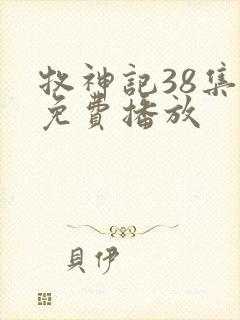 牧神記38集
免費播放
貝伊